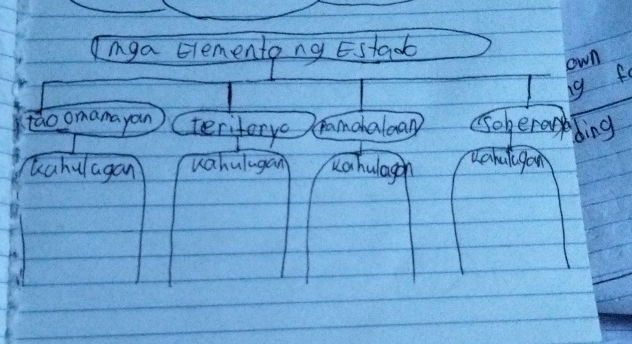 mga Elemento ng Estado
tao o mamayan teritoryo Pamahalaan Soberanya
kahulugan kahulugan kahulugan kahulugan
own
g fo
ding